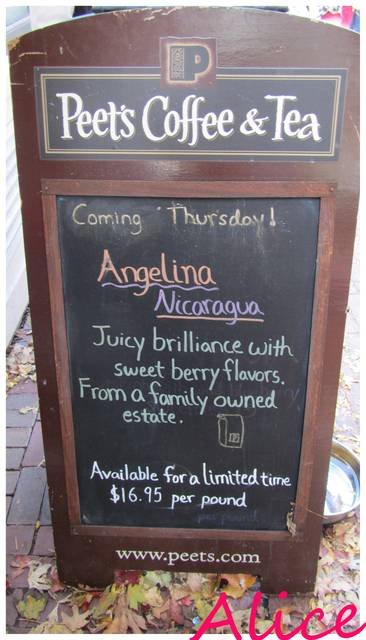 P
Peet's Coffee & Tea
Coming Thursday!
Angelina
Nicaragua
Juicy brilliance with
sweet berry flavors.
From a family owned
estate.
Available for a limited time
$16.95 per pound
per pound
www.peets.com
Alice